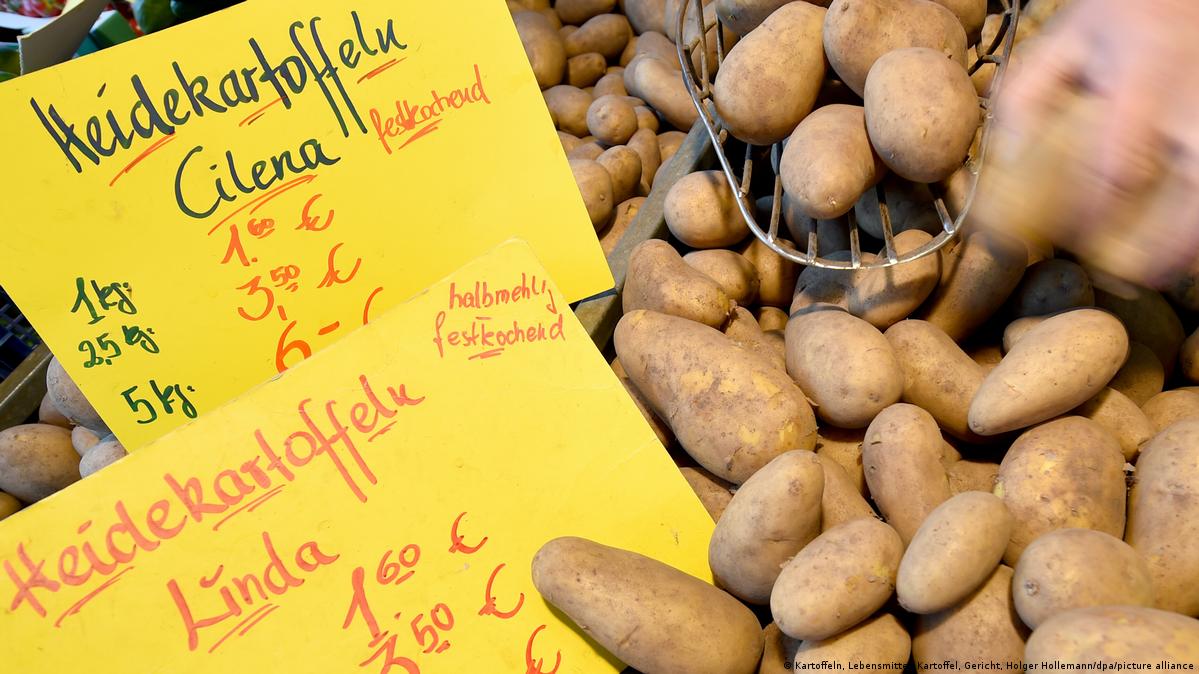 Heidekartoffeln
festkochend
Cilena
1.60 €
1kg:
3,50 €
2,5 kg:
6,- €
5 kg:
halbmehlig
festkochend
Heidekartoffeln
Linda
1.60 €
3.50 €
€
© Kartoffeln, Lebensmittel, Kartoffel, Gericht, Holger Hollemann/dpa/picture alliance